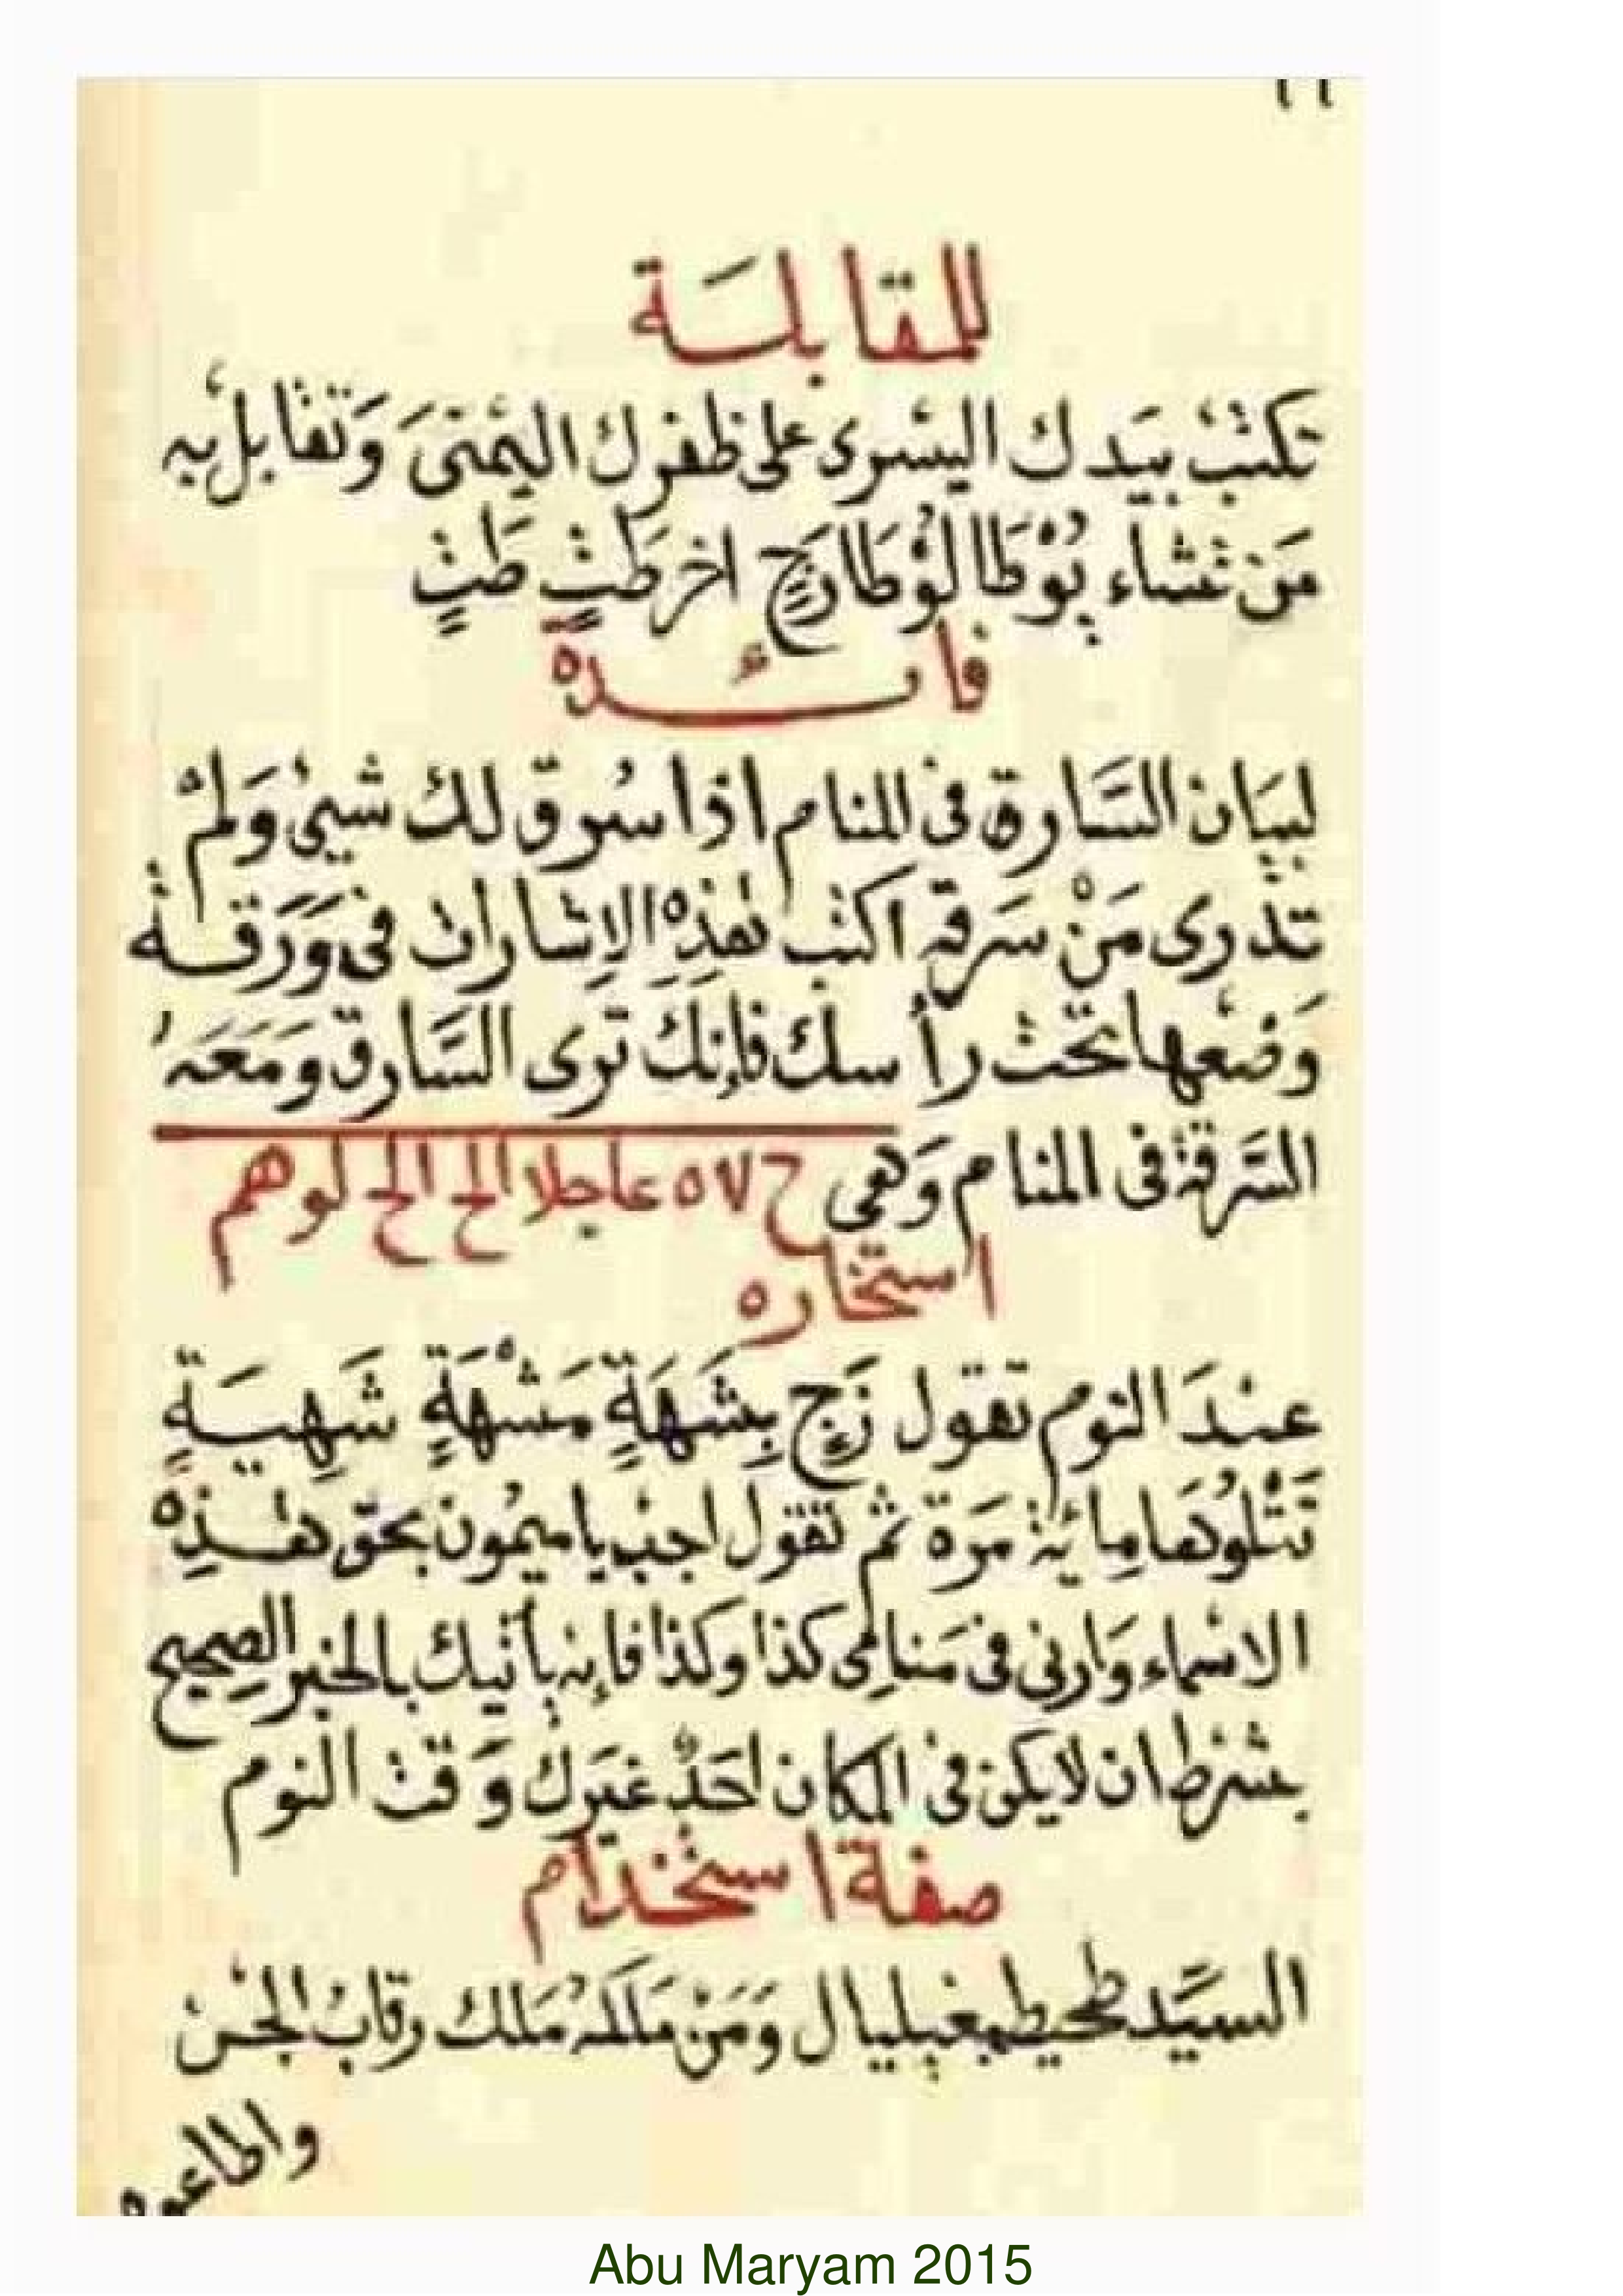 للمقابلة
تكتب بيدك اليسرى على ظفرك اليمنى وَتقابل به
مَن تشاء يُوْطَا لُؤْطَارَجٍ اخر طَبٍ طَبٍ
فائدة
لبيَان السَّارق فى المنام اذا سُرق لك شيئ وَلمْ
تدرى مَنْ سَرقه اكتب هٰذِهِ الإشارات فى وَرَقة
وَضعها تحت رأسك فإنك ترى السَّارق وَمَعَهُ
السَّرقة فى المنام وَهى ح ٥٧ عاجلا الح الح لوهم
استخاره
عندَ النوم تقول زَجٍ بِشَهَةٍ مَشْهَةٍ شَهِيَةٍ
تَتْلوُهَا مِائة مَرة ثم تقول اجب يا ميمُون بحق هٰذِهِ
الاسْماء وَارنى فى مَنامِى كذا وكذا فإنه يأتيك بالخبر الصحِيح
بشرط ان لا يكن فى المكان احَدٌ غيَرك وَقت النوم
صفة استخدام
السيَّد طحيطمغيليال وَمَنْ مَلكهُ مَلك رقابُ الجن
Abu Maryam 2015